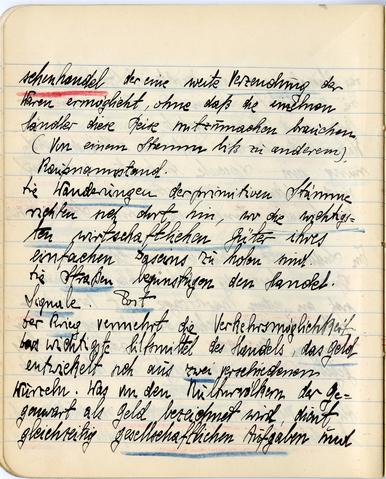 schenhandel, der eine weite Versendung der
Waren ermöglicht, ohne daß die einzelnen
Händler diese Reise mitzumachen brauchen
(Von einem Stamm bis zu anderem),
Karawanenstand.
Die Wanderungen der primitiven Stämme
richten sich dort hin, wo die wichtigs-
ten wirtschaftlichen Güter ihres
einfachen Daseins zu holen sind.
Die Straßen begünstigen den Handel.
Signale.
Der Krieg vermehrt die Verkehrsmöglichkeit
Das wichtigste Hilfsmittel des Handels, das Geld
entwickelt sich aus zwei verschiedenen
Wurzeln. Was von den Kulturvölkern der Ge-
genwart als Geld bezeichnet wird, dient
gleichzeitig gesellschaftlichen Aufgaben und